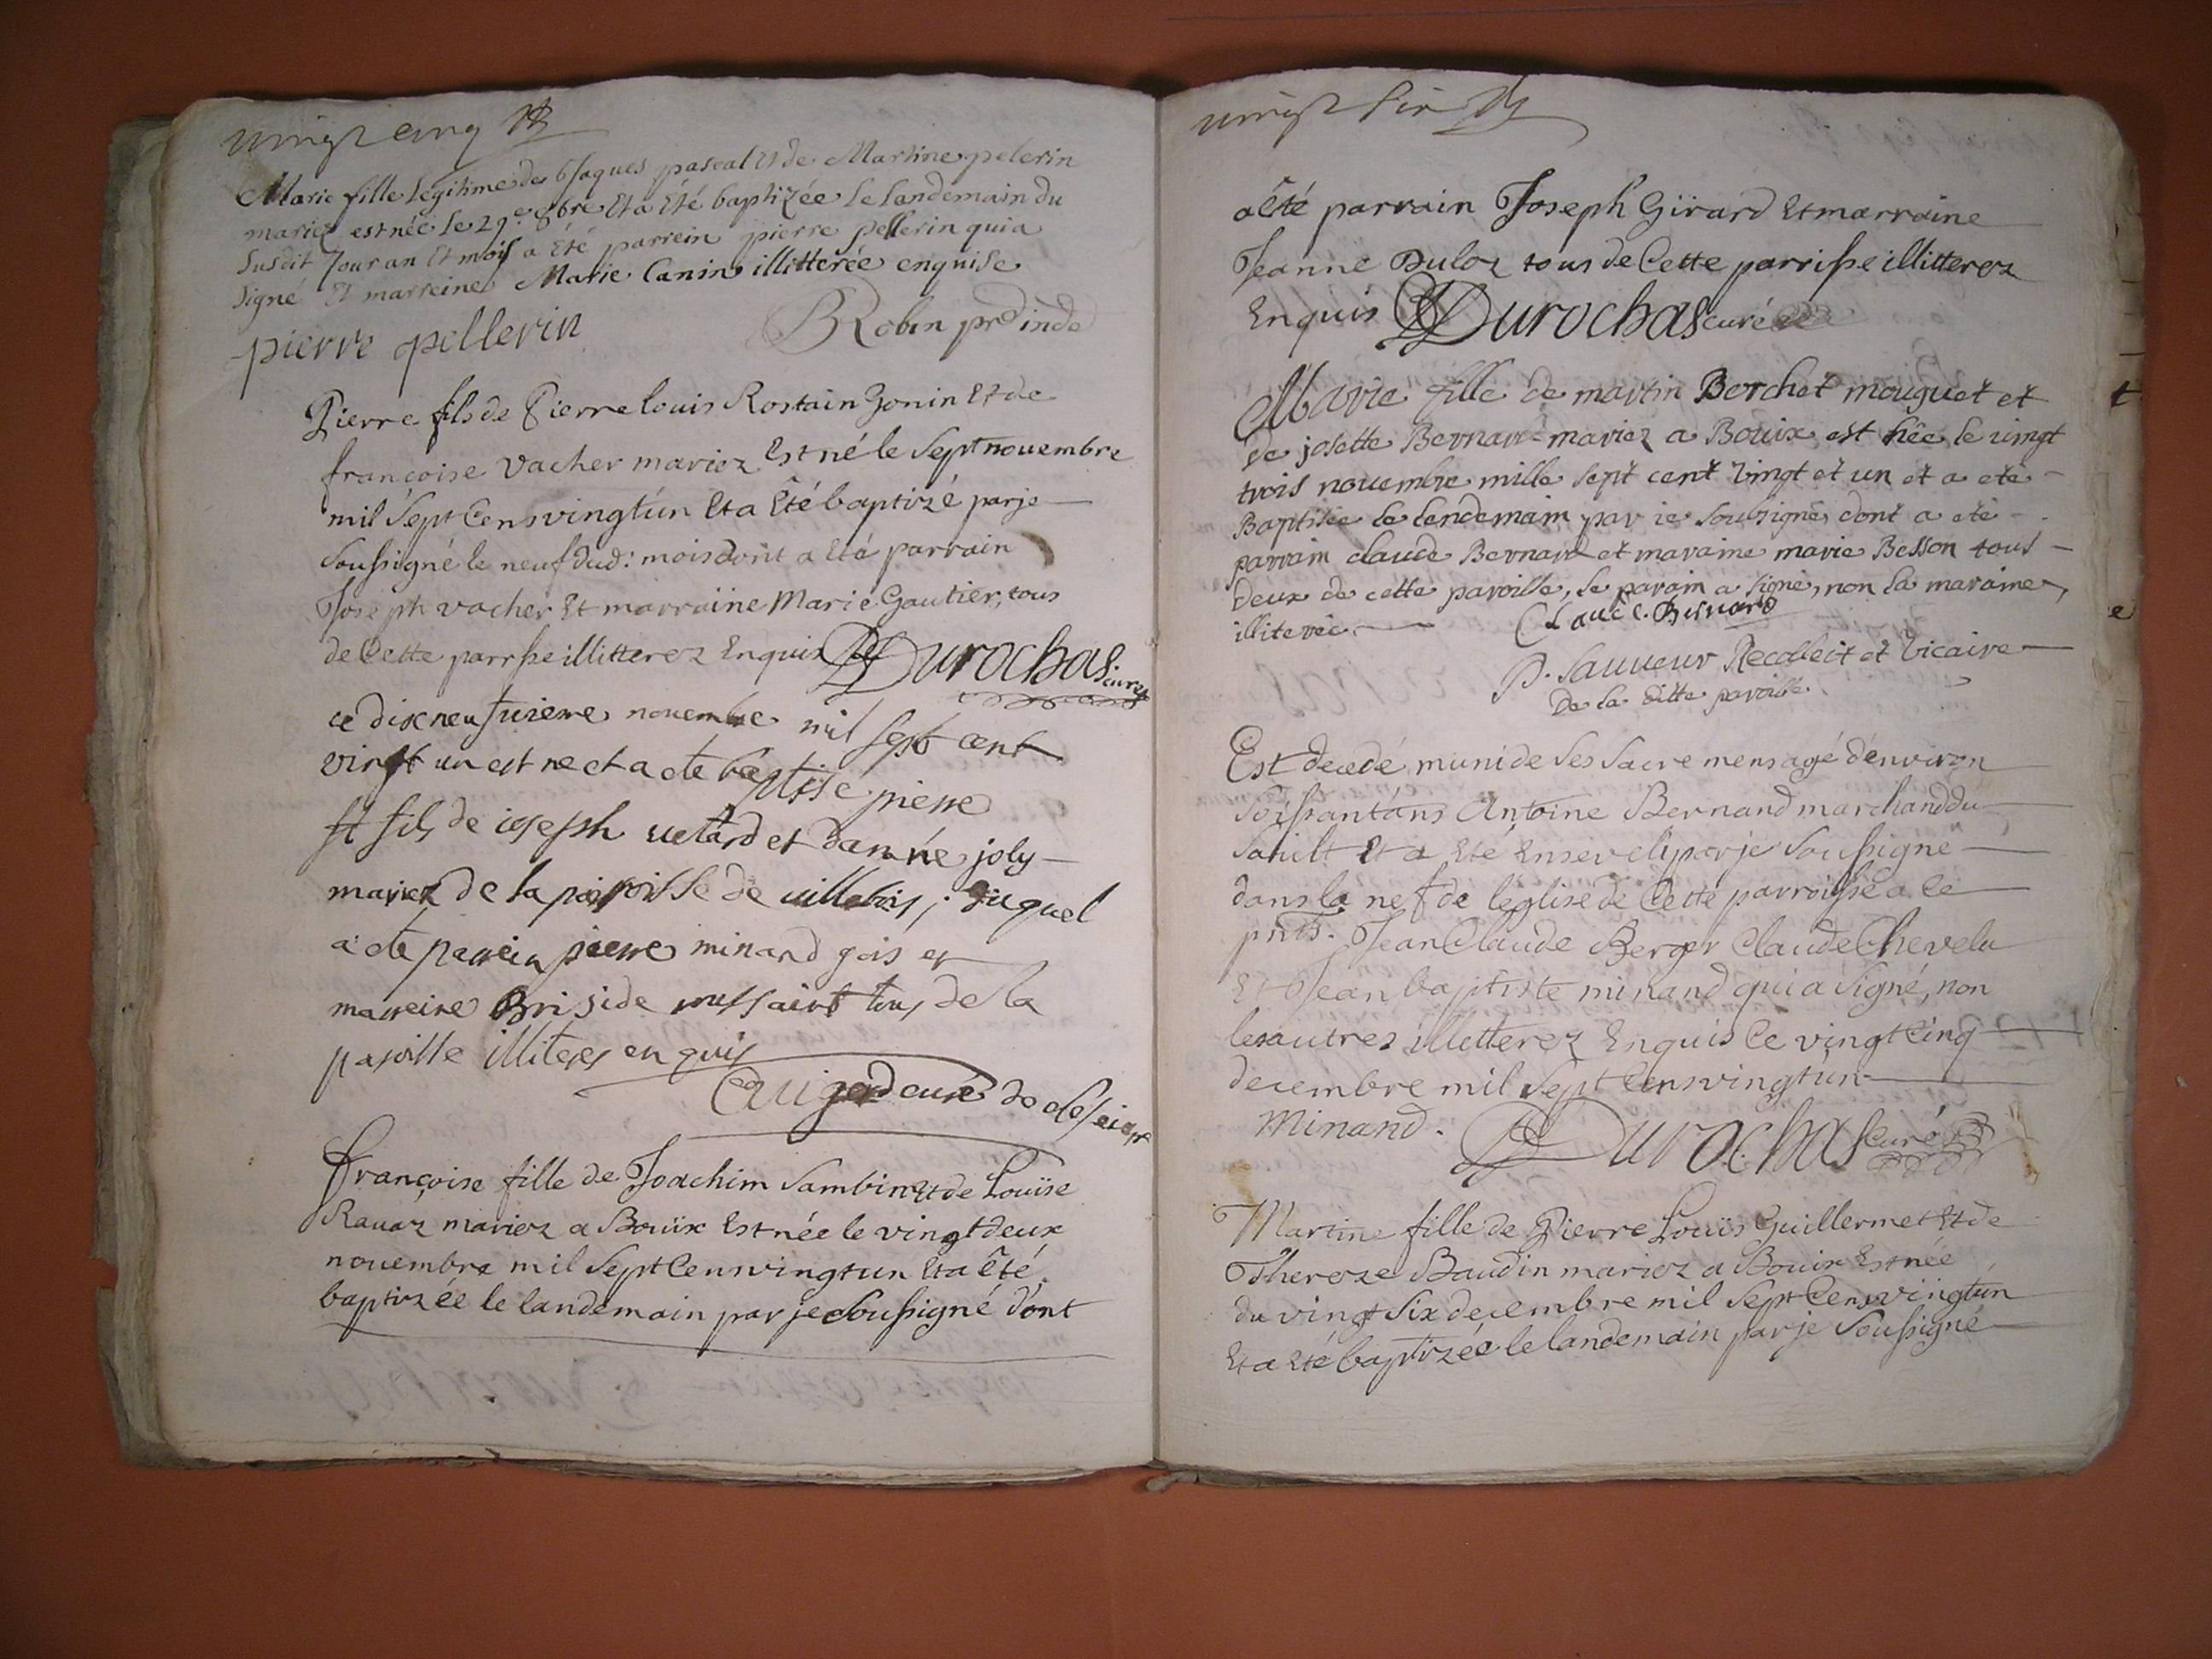 vingt cinq
Marie fille legitime de Jaques pascal et de Martine pelerin
mariez est née le 29e 8bre Et a Eté baptizée le landemain du
susdit Jour an Et mois a Eté parrein pierre pellerin qui a
signé Et marreine Marie Canin illitterée enquise
pierre pellerin Robin
Pierre fils de Pierre louis Rostain Zonin Et de
francoise vacher mariez Est né le Sept nouembre
mil Sept Cens vingt ún Et a Eté baptizé par je
Soussigné le neuf dud: mois dont a Eté parrain
Joseph vacher Et marraine Marie Gautier, tous
de Cette parrsse illitterez Enquis Durochas curé
ce dixneufuieme nouembre mil sept cent
vingt un est ne et a ete baptisé pierre
fils de ioseph uetard et danne joly
mariez de la paroisse de uillebois, duquel
a ete parrein pierre minand gois et
marreine Briside tous de la
paroisse illiteres enquis
curé de
françoise fille de Joachim Sambin Et de Louïse
Rauaz mariez a Bouïx Est née le vingt deux
nouembre mil Sept Cens vingt un Et a êté
baptizée le landemain par je Soussigné dont
vingt six
a êté parrain Joseph Girard Et marraine
Jeanne Duloz tous de Cette parrisse illitterez
Enquis Durochas curé
Marie fille de martin Berchet mouguet et
de josette Bernard mariez a Bouix est née le uingt
trois nouembre mille sept cent vingt et un et a eté
Baptisée le lendemain par ie soubsigné, dont a eté
parrain claude Bernard et maraine marie Besson tous
deux de cette paroisse, le parain a signé, non la maraine,
illiterée Claude Bernard
P. Sauveur Recollect et vicaire
De la ditte paroisse
Est decedé muni de Ses Sacremens agé d'environ
Soissant ans Antoine Bernand marchand du
Sault Et a Eté Enseveli par je Soussigné
dans la nef de léglise de Cette parroisse a Ce
pnts. Jean Claude Berger Claude Chevelu
Et Jean baptiste minand qui a Signé, non
les autres illetterez Enquis Ce vingt Cinq
decembre mil Sept Cens vingt ún
Minand. Durochas Curé
Martine fille de Pierre Louïs Guillermet Et de
Thereze Baudin mariez a Bouix Est née
du vingt Six decembre mil Sept Cens vingt ún
Et a Eté baptizée le landemain par je Soussigné